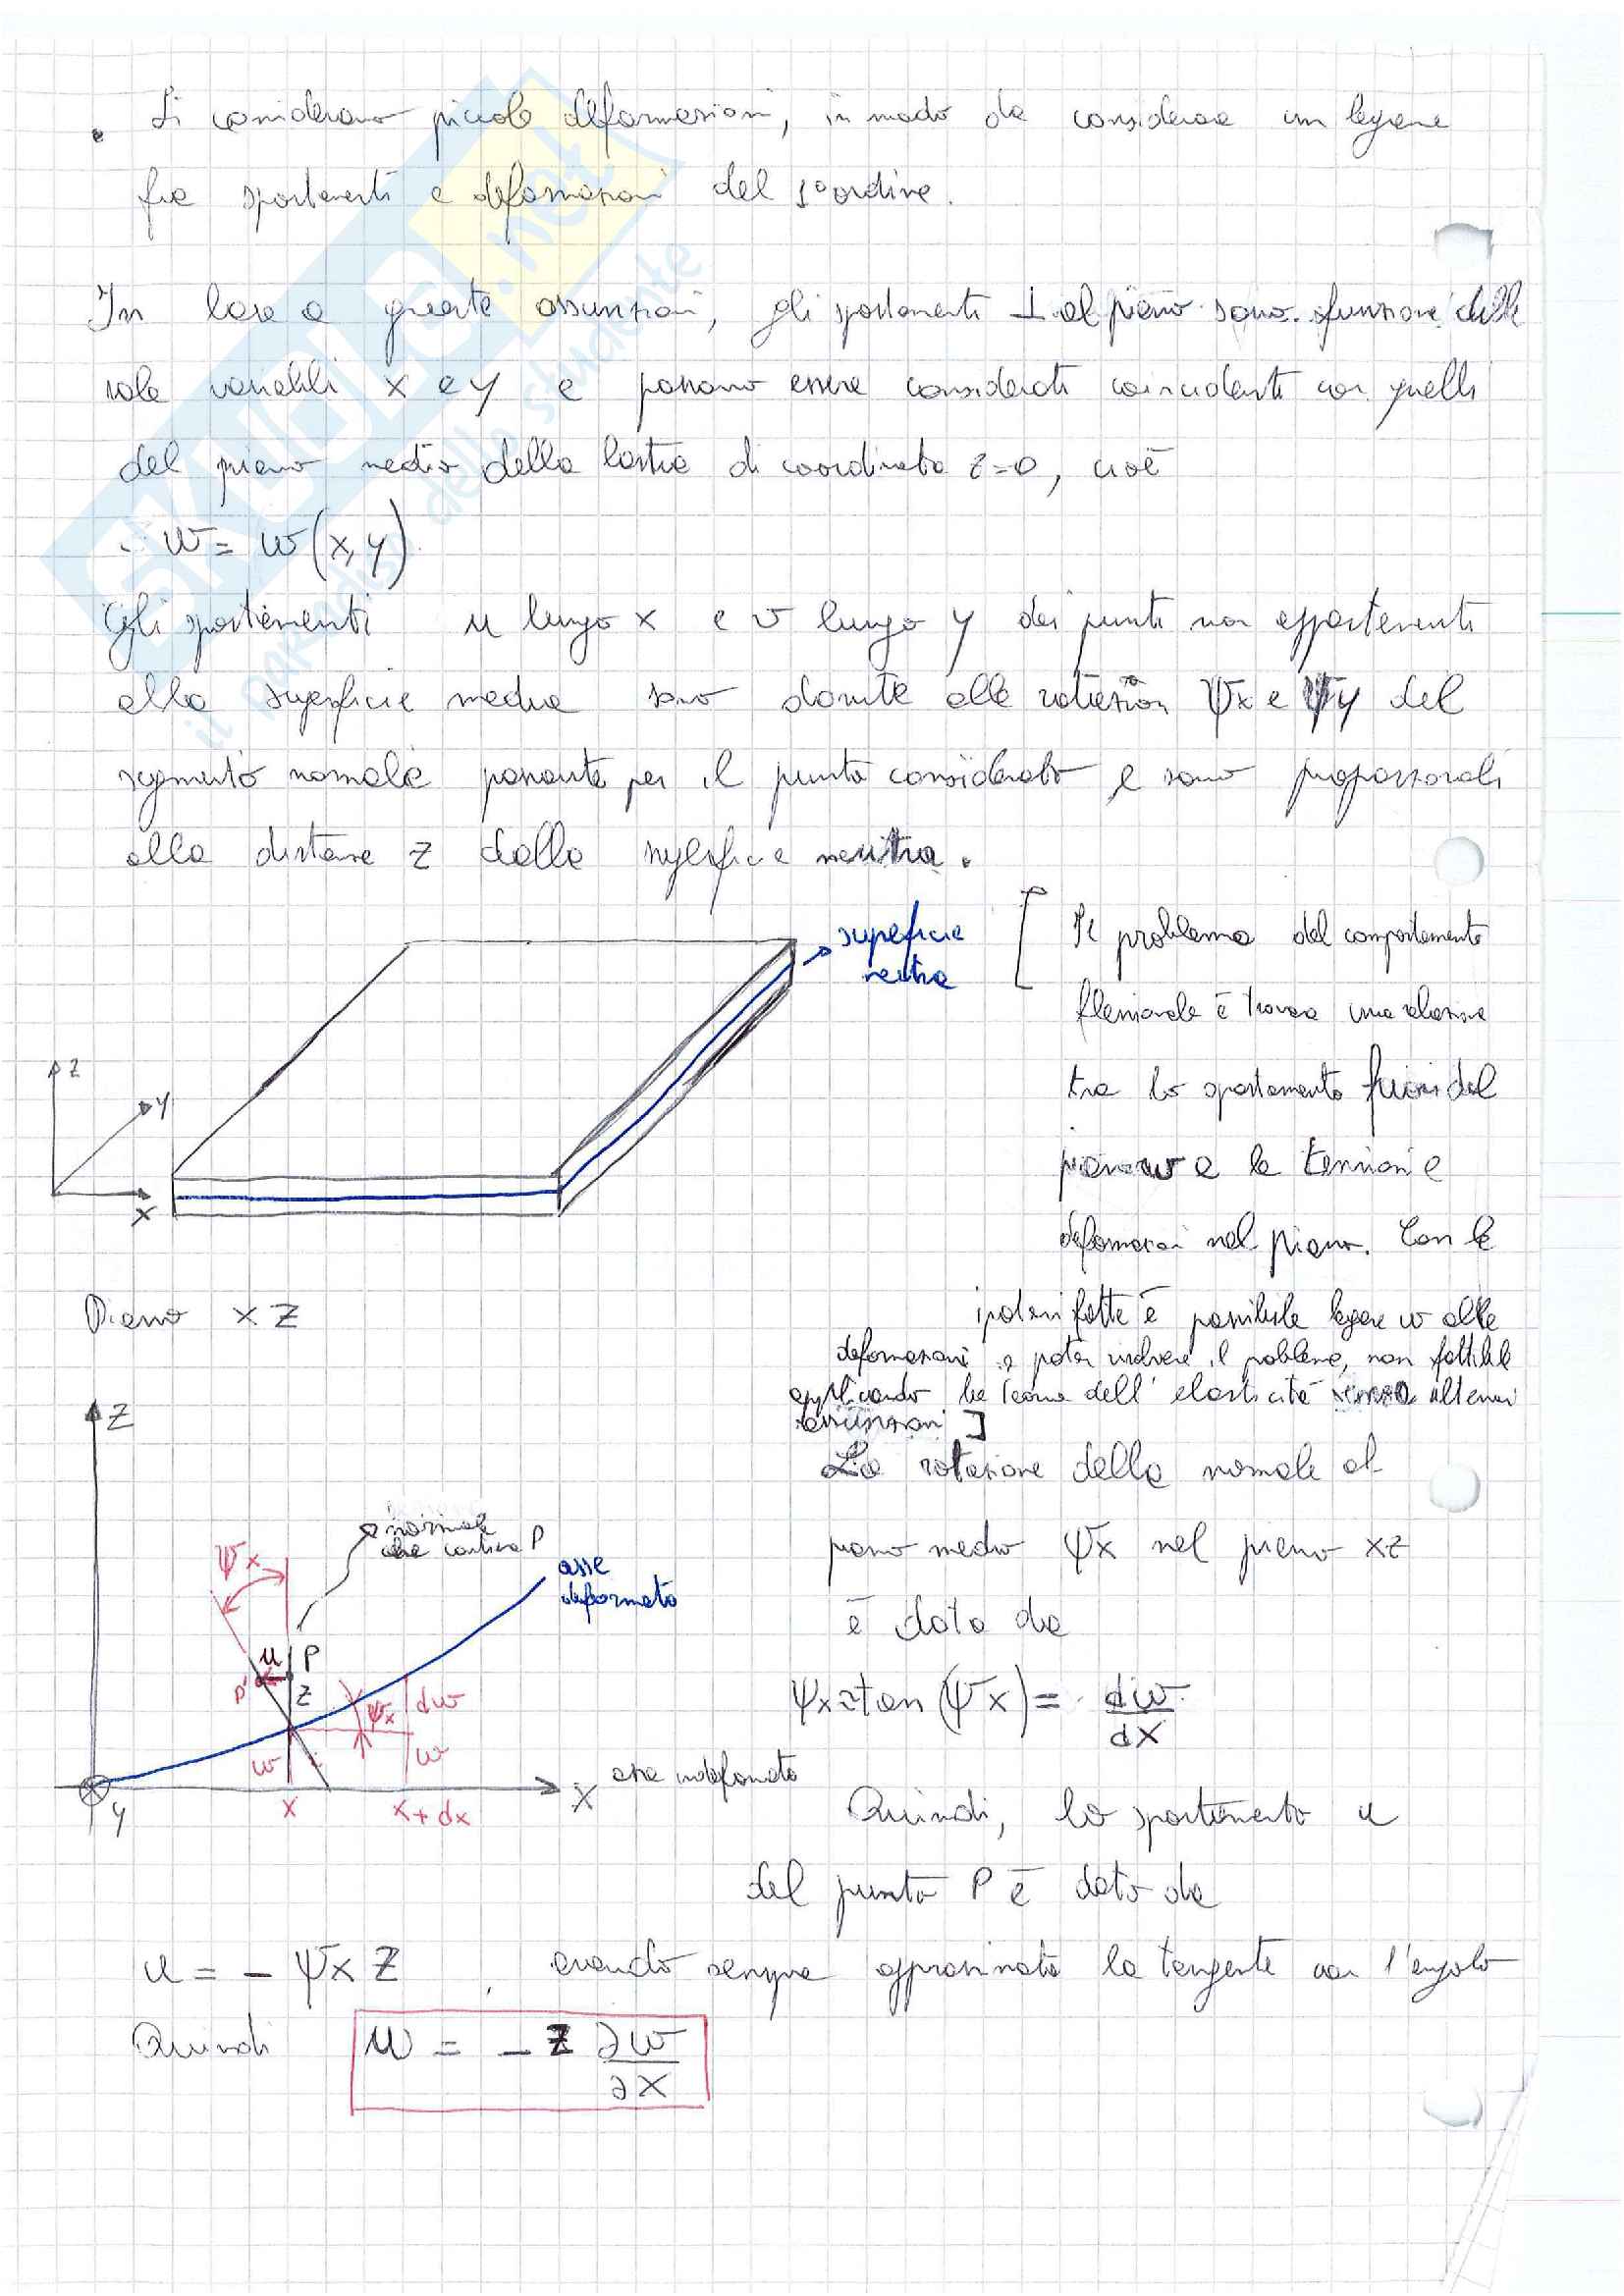 • Si considerano piccole deformazioni, in modo da considerare un legame
fra spostamenti e deformazioni del 1° ordine.
In base a queste assunzioni, gli spostamenti ⊥ al piano sono funzione delle
sole variabili x e y e possono essere considerati coincidenti con quelli
del piano medio della lastra di coordinata z=0, cioè
w = w(x,y)
Gli spostamenti u lungo x e v lungo y dei punti non appartenenti
alla superficie media sono dovute alle rotazioni ψx e ψy del
segmento normale passante per il punto considerato e sono proporzionali
alla distanza z dalla superficie neutra.
superficie
neutra
[ Il problema del comportamento
flessionale è trovare una relazione
tra lo spostamento fuori del
piano w e le tensioni e
deformazioni nel piano. Con le
ipotesi fatte è possibile legare w alle
deformazioni e poter risolvere il problema, non fattibile
applicando la teoria dell'elasticità senza ulteriori
assunzioni ]
z
y
x
Piano xz
La rotazione della normale al
piano medio ψx nel piano xz
è data da
ψx≃tan(ψx) = dw/dx
z
normale
che contiene P
ψx
asse
deformato
u P
P' z
ψx dw
w w
x asse indeformato
y x x+dx
Quindi, lo spostamento u
del punto P è dato da
u = - ψx z , avendo sempre approssimato la tangente con l'angolo
Quindi u = -z ∂w/∂x
SKUOLA.net
il paradiso dello studente